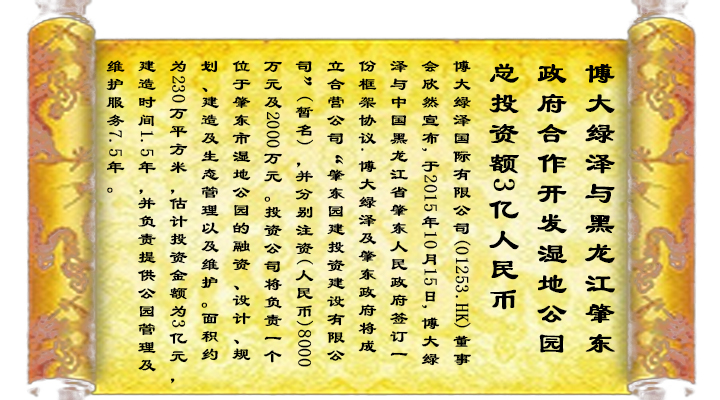 博大绿泽与黑龙江肇东
政府合作开发湿地公园
总投资额3亿人民币
博大绿泽国际有限公司(01253.HK)董事
会欣然宣布,于2015年10月15日,博大绿
泽与中国黑龙江省肇东人民政府签订一
份框架协议.博大绿泽及肇东政府将成
立合营公司“肇东园建投资建设有限公
司”(暂名),并分别注资(人民币)8000
万元及2000万元。投资公司将负责一个
位于肇东市湿地公园的融资、设计、规
划、建造及生态管理以及维护。面积约
为230万平方米,估计投资金额为3亿元,
建造时间1.5年,并负责提供公园管理及
维护服务7.5年。